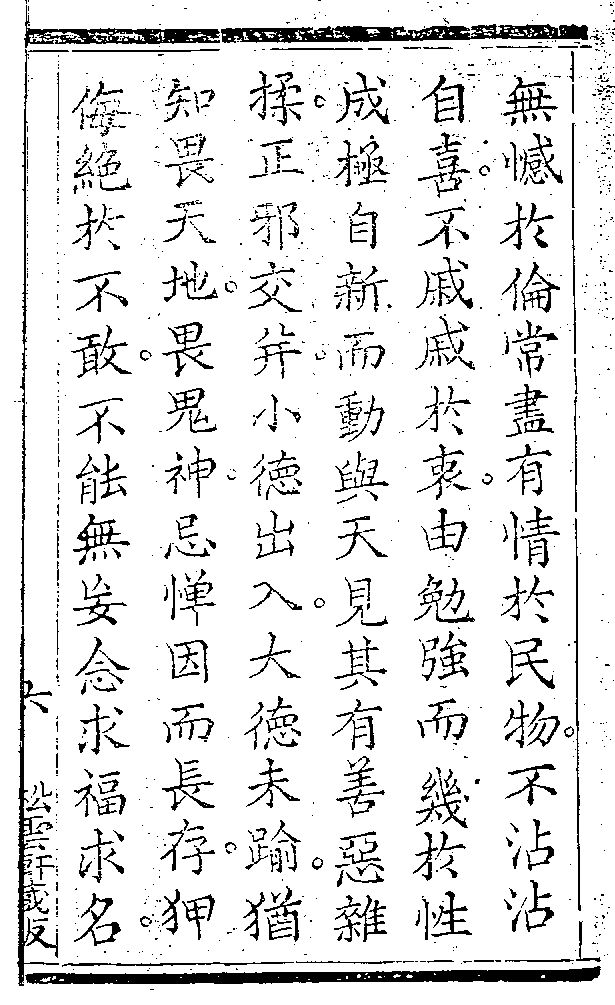 無憾於倫常盡有情於民物。不沾沾
自喜。不戚戚於衷。由勉強而幾於性
成極自新而動與天見其有善惡雜
揉。正邪交并。小德出入。大德未踰。猶
知畏天地。畏鬼神。忌憚因而長存。狎
侮絕於不敢。不能無妄念求福求名。
六
松雲軒藏板